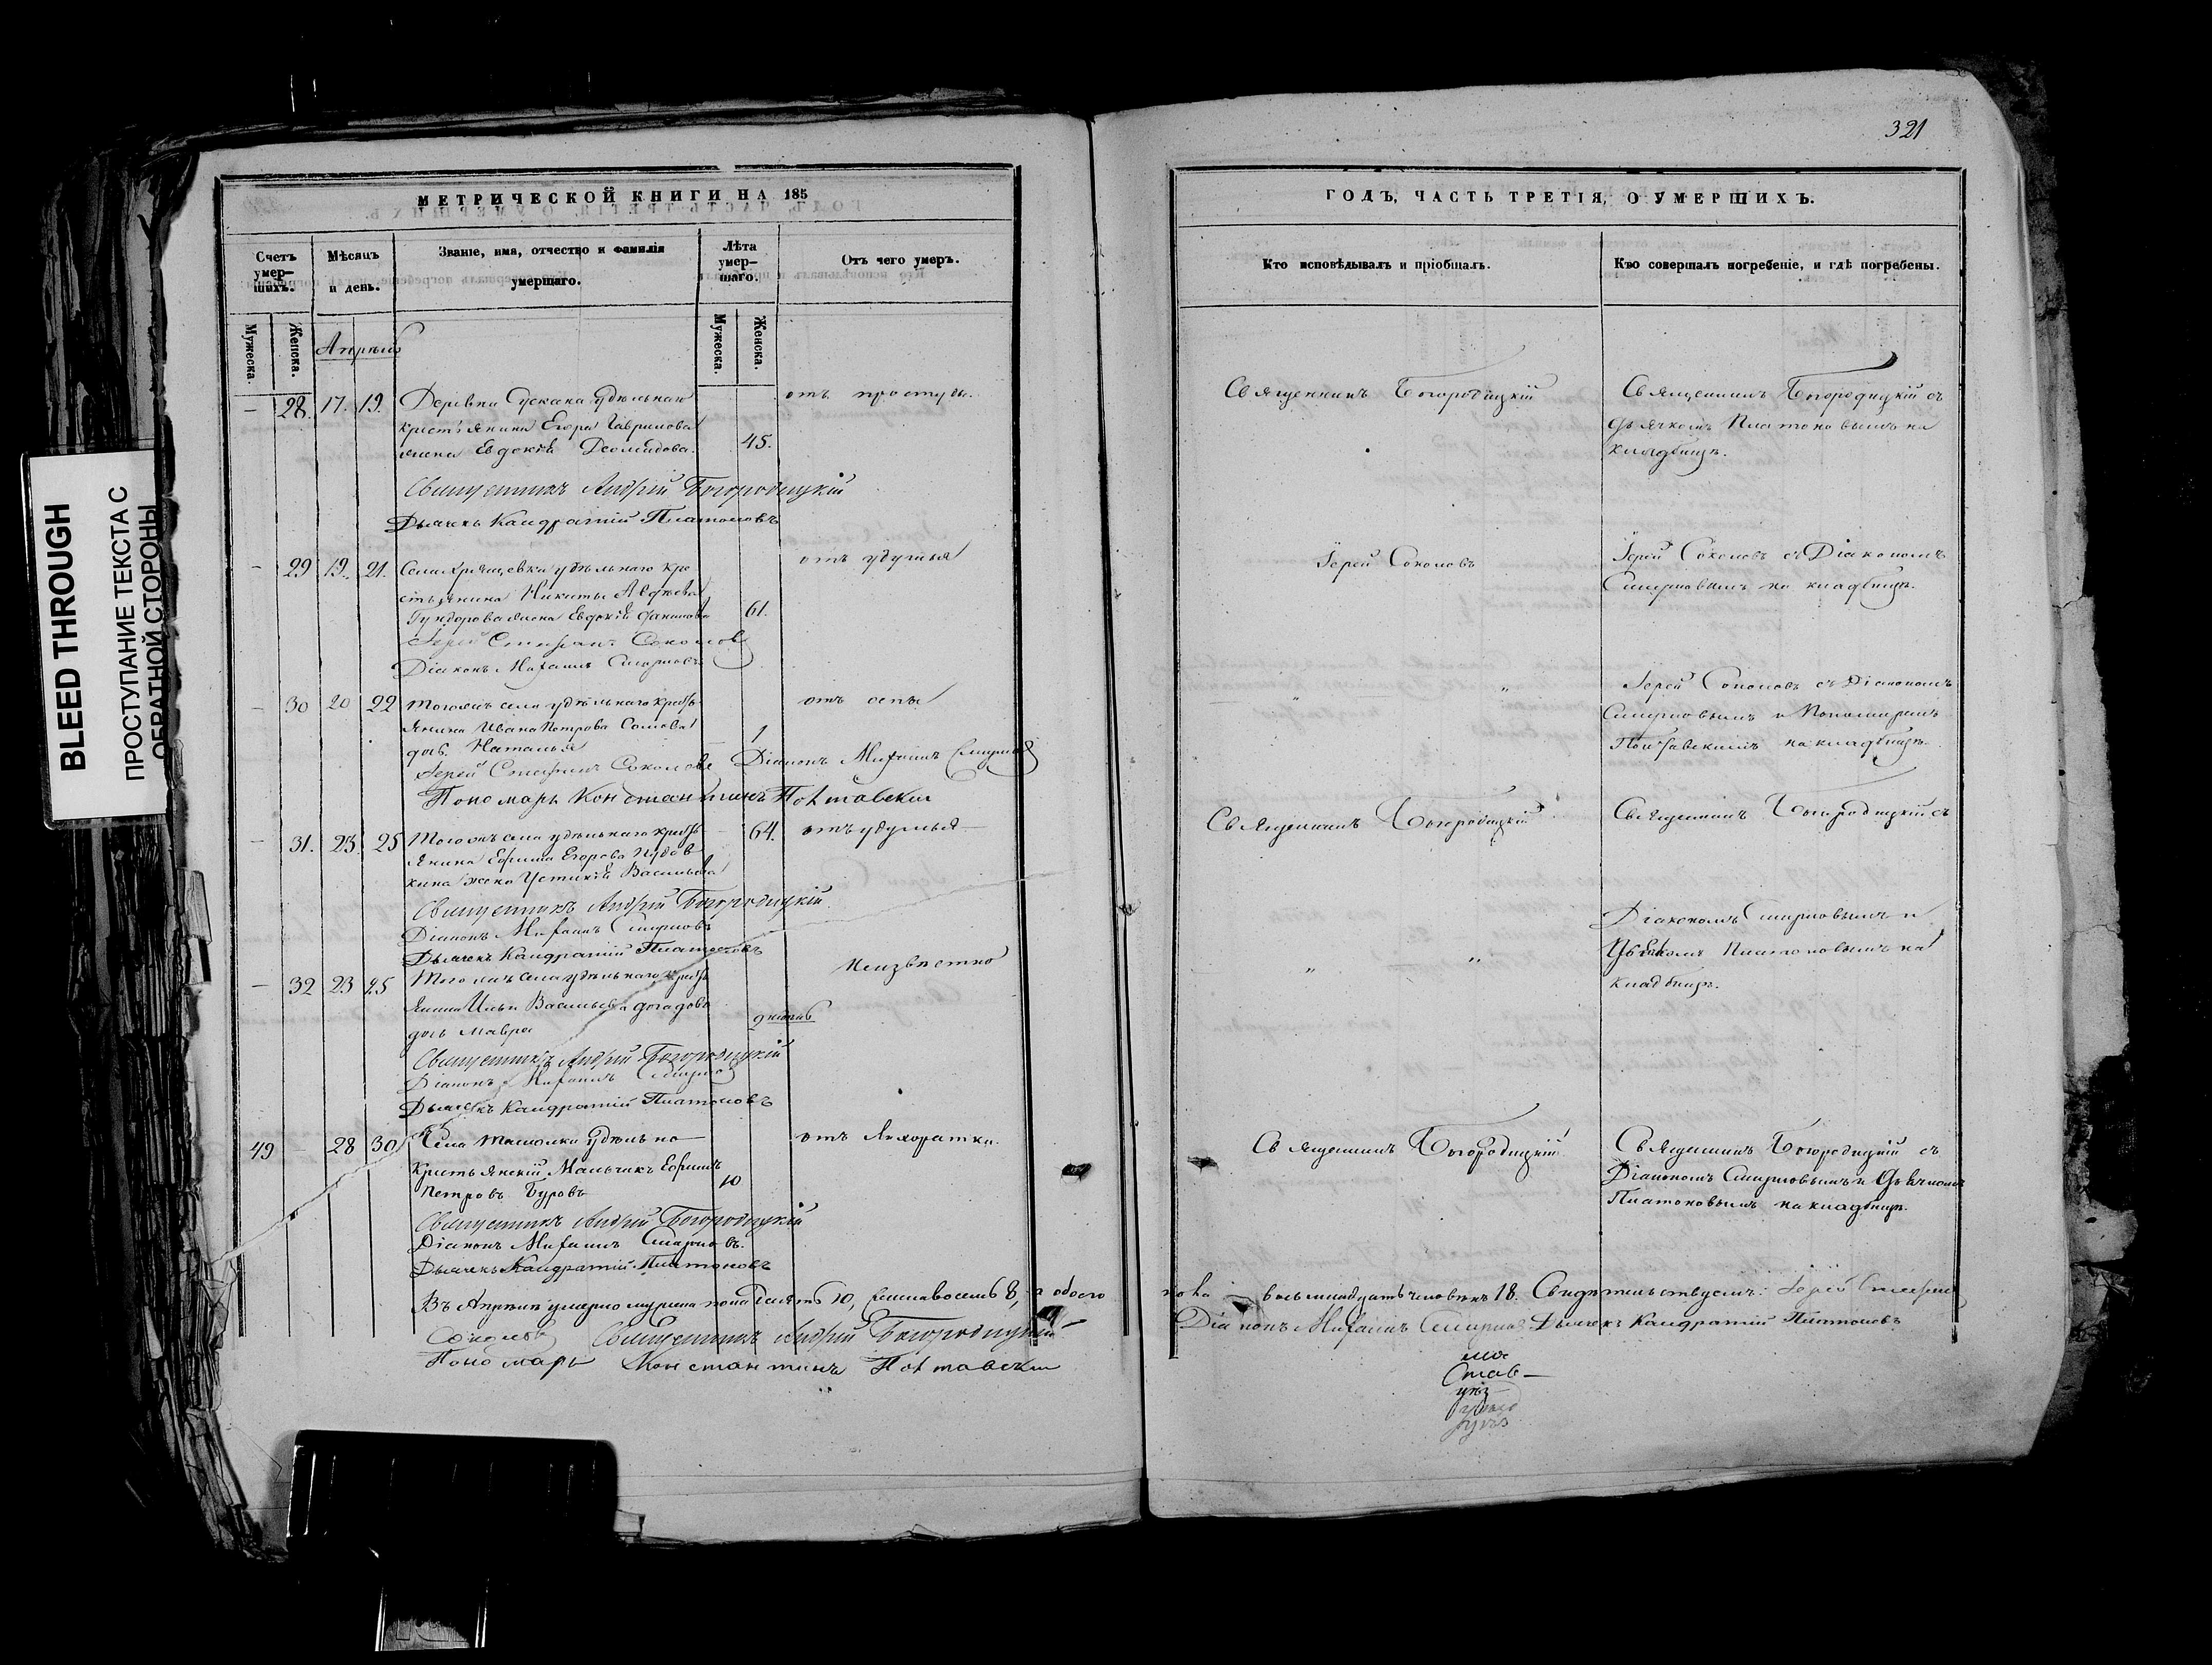 BLEED THROUGH
ПРОСТУПАНИЕ ТЕКСТА С
ОБРАТНОЙ СТОРОНЫ
МЕТРИЧЕСКОЙ КНИГИ НА 185
Счетъ умер-шихъ.
Мѣсяцъ и день.
Званіе, имя, отчество и фамилія умершаго.
Лѣта умер-шаго.
Отъ чего умеръ.
Мужеска.
Женска.
Мужеска.
Женска.
Апрѣль
28. 17. 19. Деревни Сускана удѣльнаго отъ простуды.
крестьянина Егора Гаврилова
жена Евдокія Деомидова. 45.
Священникъ Андрей Богородицкій
Дьячекъ Кандратій Платоновъ
29 19. 21. Села Хрящевки удѣльнаго кре отъ удушья
стьянина Никиты Авдѣева
жена Евдокія 61.
Іерей Стефанъ Соколовъ
Діаконъ Михаилъ Смирновъ
30 20 22 Тогожъ села удѣльнаго кресть отъ оспы
янина Ивана Петрова Сомова 1
дочь Наталья
Іерей Стефанъ Соколовъ Діаконъ Михаилъ Смирновъ
Пономарь Константинъ Полтавскій
31. 23. 25 Тогожъ села удѣльнаго кресть 64. отъ удушья
янина Ефима Егорова
кина жена Устинія Васильева
Священникъ Андрей Богородицкій
Діаконъ Михаилъ Смирновъ
Дьячекъ Кандратій Платоновъ
32 23 25 Тогожъ села удѣльнаго кресть неизвѣстно
янина Ильи Васильева
дочь Мавра
Священникъ Андрей Богородицкій
Діаконъ Михаилъ Смирновъ
Дьячекъ Кандратій Платоновъ
49 28 30 Села Ташолки удѣльно отъ лихоратки.
крестьянскій мальчикъ Ефимъ 10
Петровъ Буровъ
Священникъ Андрей Богородицкій
Діаконъ Михаилъ Смирновъ.
Дьячекъ Кандратій Платоновъ
Въ Апрѣлѣ умерло мужеска пола десять 10, женска восемь 8, а обоего
Соколовъ Священникъ Андрей Богородицкій
Пономарь Константинъ Полтавскій
321
ГОДЪ, ЧАСТЬ ТРЕТІЯ, О УМЕРШИХЪ.
Кто исповѣдывалъ и пріобщалъ.
Кто совершалъ погребеніе, и гдѣ погребены.
Священникъ Богородицкій
Священникъ Богородицкій съ
дьячкомъ Платоновымъ на
кладбищѣ.
Іерей Соколовъ
Іерей Соколовъ съ Діакономъ
Смирновымъ на кладбищѣ.
" "
Іерей Соколовъ съ Діакономъ
Смирновымъ и Пономаремъ
Полтавскимъ на кладбищѣ.
Священникъ Богородицкій
Священникъ Богородицкій съ
Діакономъ Смирновымъ и
Дьячкомъ Платоновымъ на
кладбищѣ.
" "
Священникъ Богородицкій
Священникъ Богородицкій съ
Діакономъ Смирновымъ и Дьячкомъ
Платоновымъ на кладбищѣ.
пола восьмнадцать человѣкъ 18. Свидѣтельствуемъ: Іерей Стефанъ
Діаконъ Михаилъ Смирновъ Дьячекъ Кандратій Платоновъ
Став-